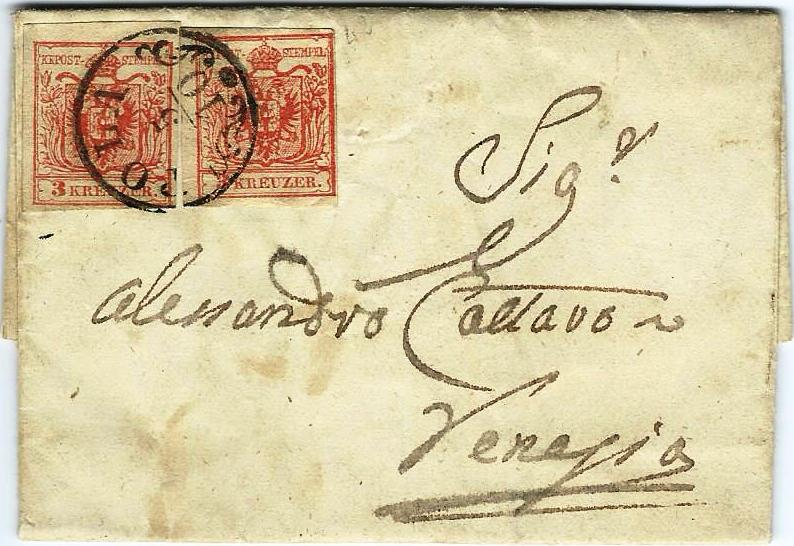 KKPOST- STEMPEL
3 KREUZER.
STEMPEL
KREUZER.
Sigr
Alessandro
Venezia